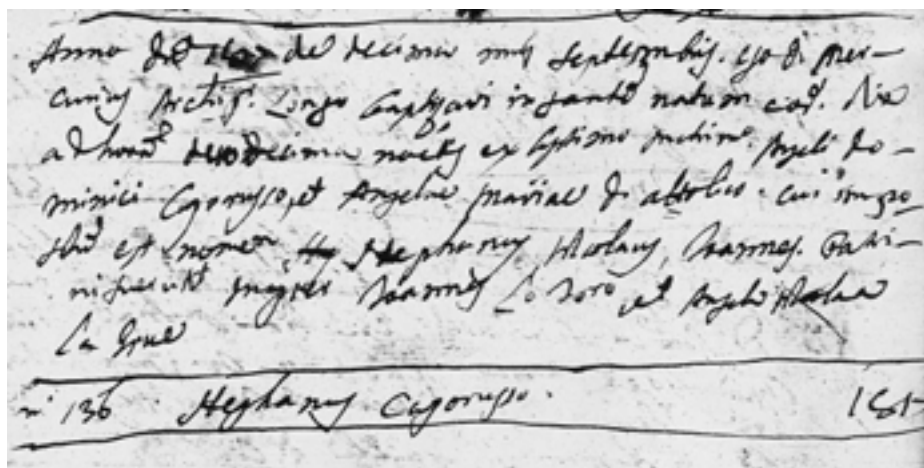 Anno die decima mēs Septembris. ego D. Mer-
curius Archip. Longo baptizavi infantē natum eod. die
ad horā duodecima noctis ex legitimo matrim. Angeli Do-
minici Caporusso, et Angelae Mariae di Attolico. cui impo-
sitū est nomen Stephanus Nicolaus, Joannes. Patri-
ni fuerūt Joannes Lo Zoro et Angela Nicolaa
La Grue
n 136 Stephanus Caporusso.